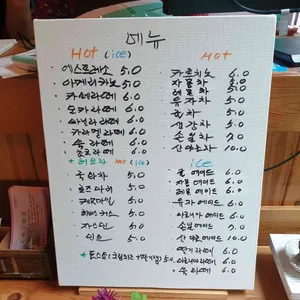 메뉴
Hot (ice)
에스프레소 5.0
아메리카노 5.0
카페라떼 6.0
모카라떼 6.0
바닐라라떼 6.0
카라멜라떼 6.0
쑥라떼 6.0
초코라떼 6.0
* 허브차 Hot (ice)
국화차 5.0
로즈마리 5.0
캐모마일 5.0
히비스커스 5.0
자스민 5.0
민트 5.0
Hot
카푸치노 6.0
자몽차 6.0
레몬차 6.0
유자차 6.0
6.0
생강차 6.0
7.0
10.0
ice
에이드 6.0
자몽 에이드 6.0
레몬 에이드 6.0
유자 에이드 6.0
에이드 6.0
에이드 7.0
에이드 10.0
딸기라떼 6.0
6.0
6.0
* 토스트 5.0